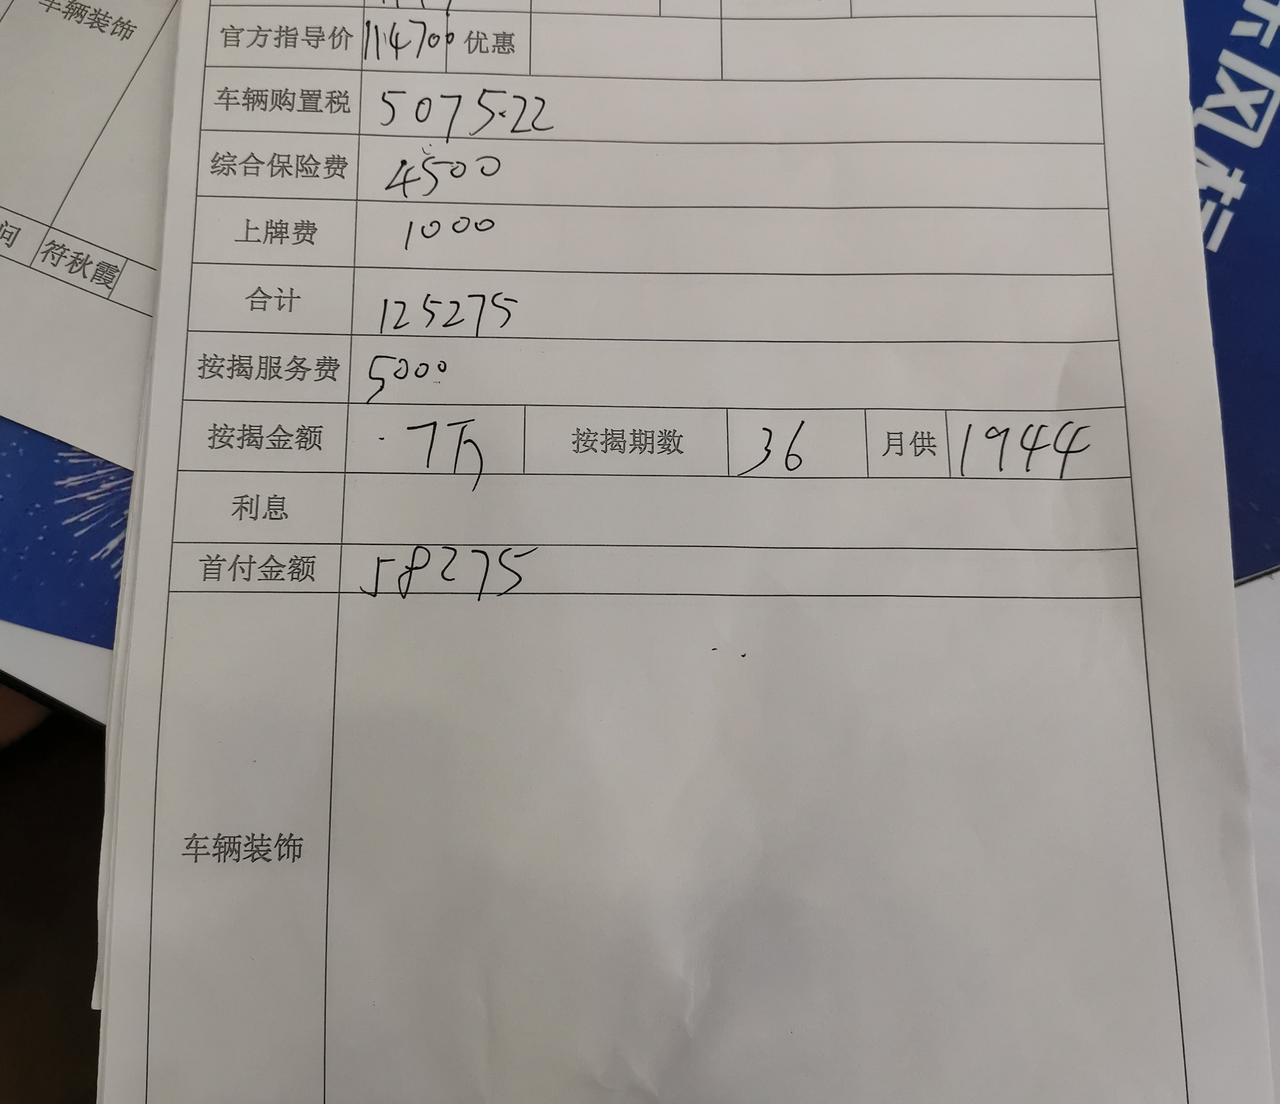 车辆装饰
官方指导价 114700 优惠
车辆购置税 5075.22
综合保险费 4500
上牌费 1000
问 符秋霞
合计 125275
按揭服务费 5000
按揭金额 7万 按揭期数 36 月供 1944
利息
首付金额 58275
车辆装饰
风标